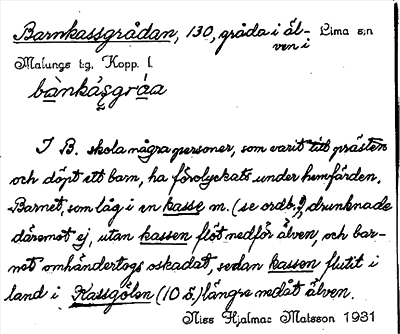 Barnkassgrådan, 130, gråda i äl- Lima s:n
ven i
Malungs tg, Kopp. l.
bànkásgráa
I B. skola några personer, som varit till prästen
och döpt ett barn, ha förolyckats under hemfärden.
Barnet, som låg i en kasse m. (se ordb.!), drunknade
däremot ej, utan kassen flöt nedför älven, och bar-
net omhändertogs oskadat, sedan kassen flutit i
land i Kassgölen (10 ö.) längre nedåt älven.
Niss Hjalmar Matsson 1931